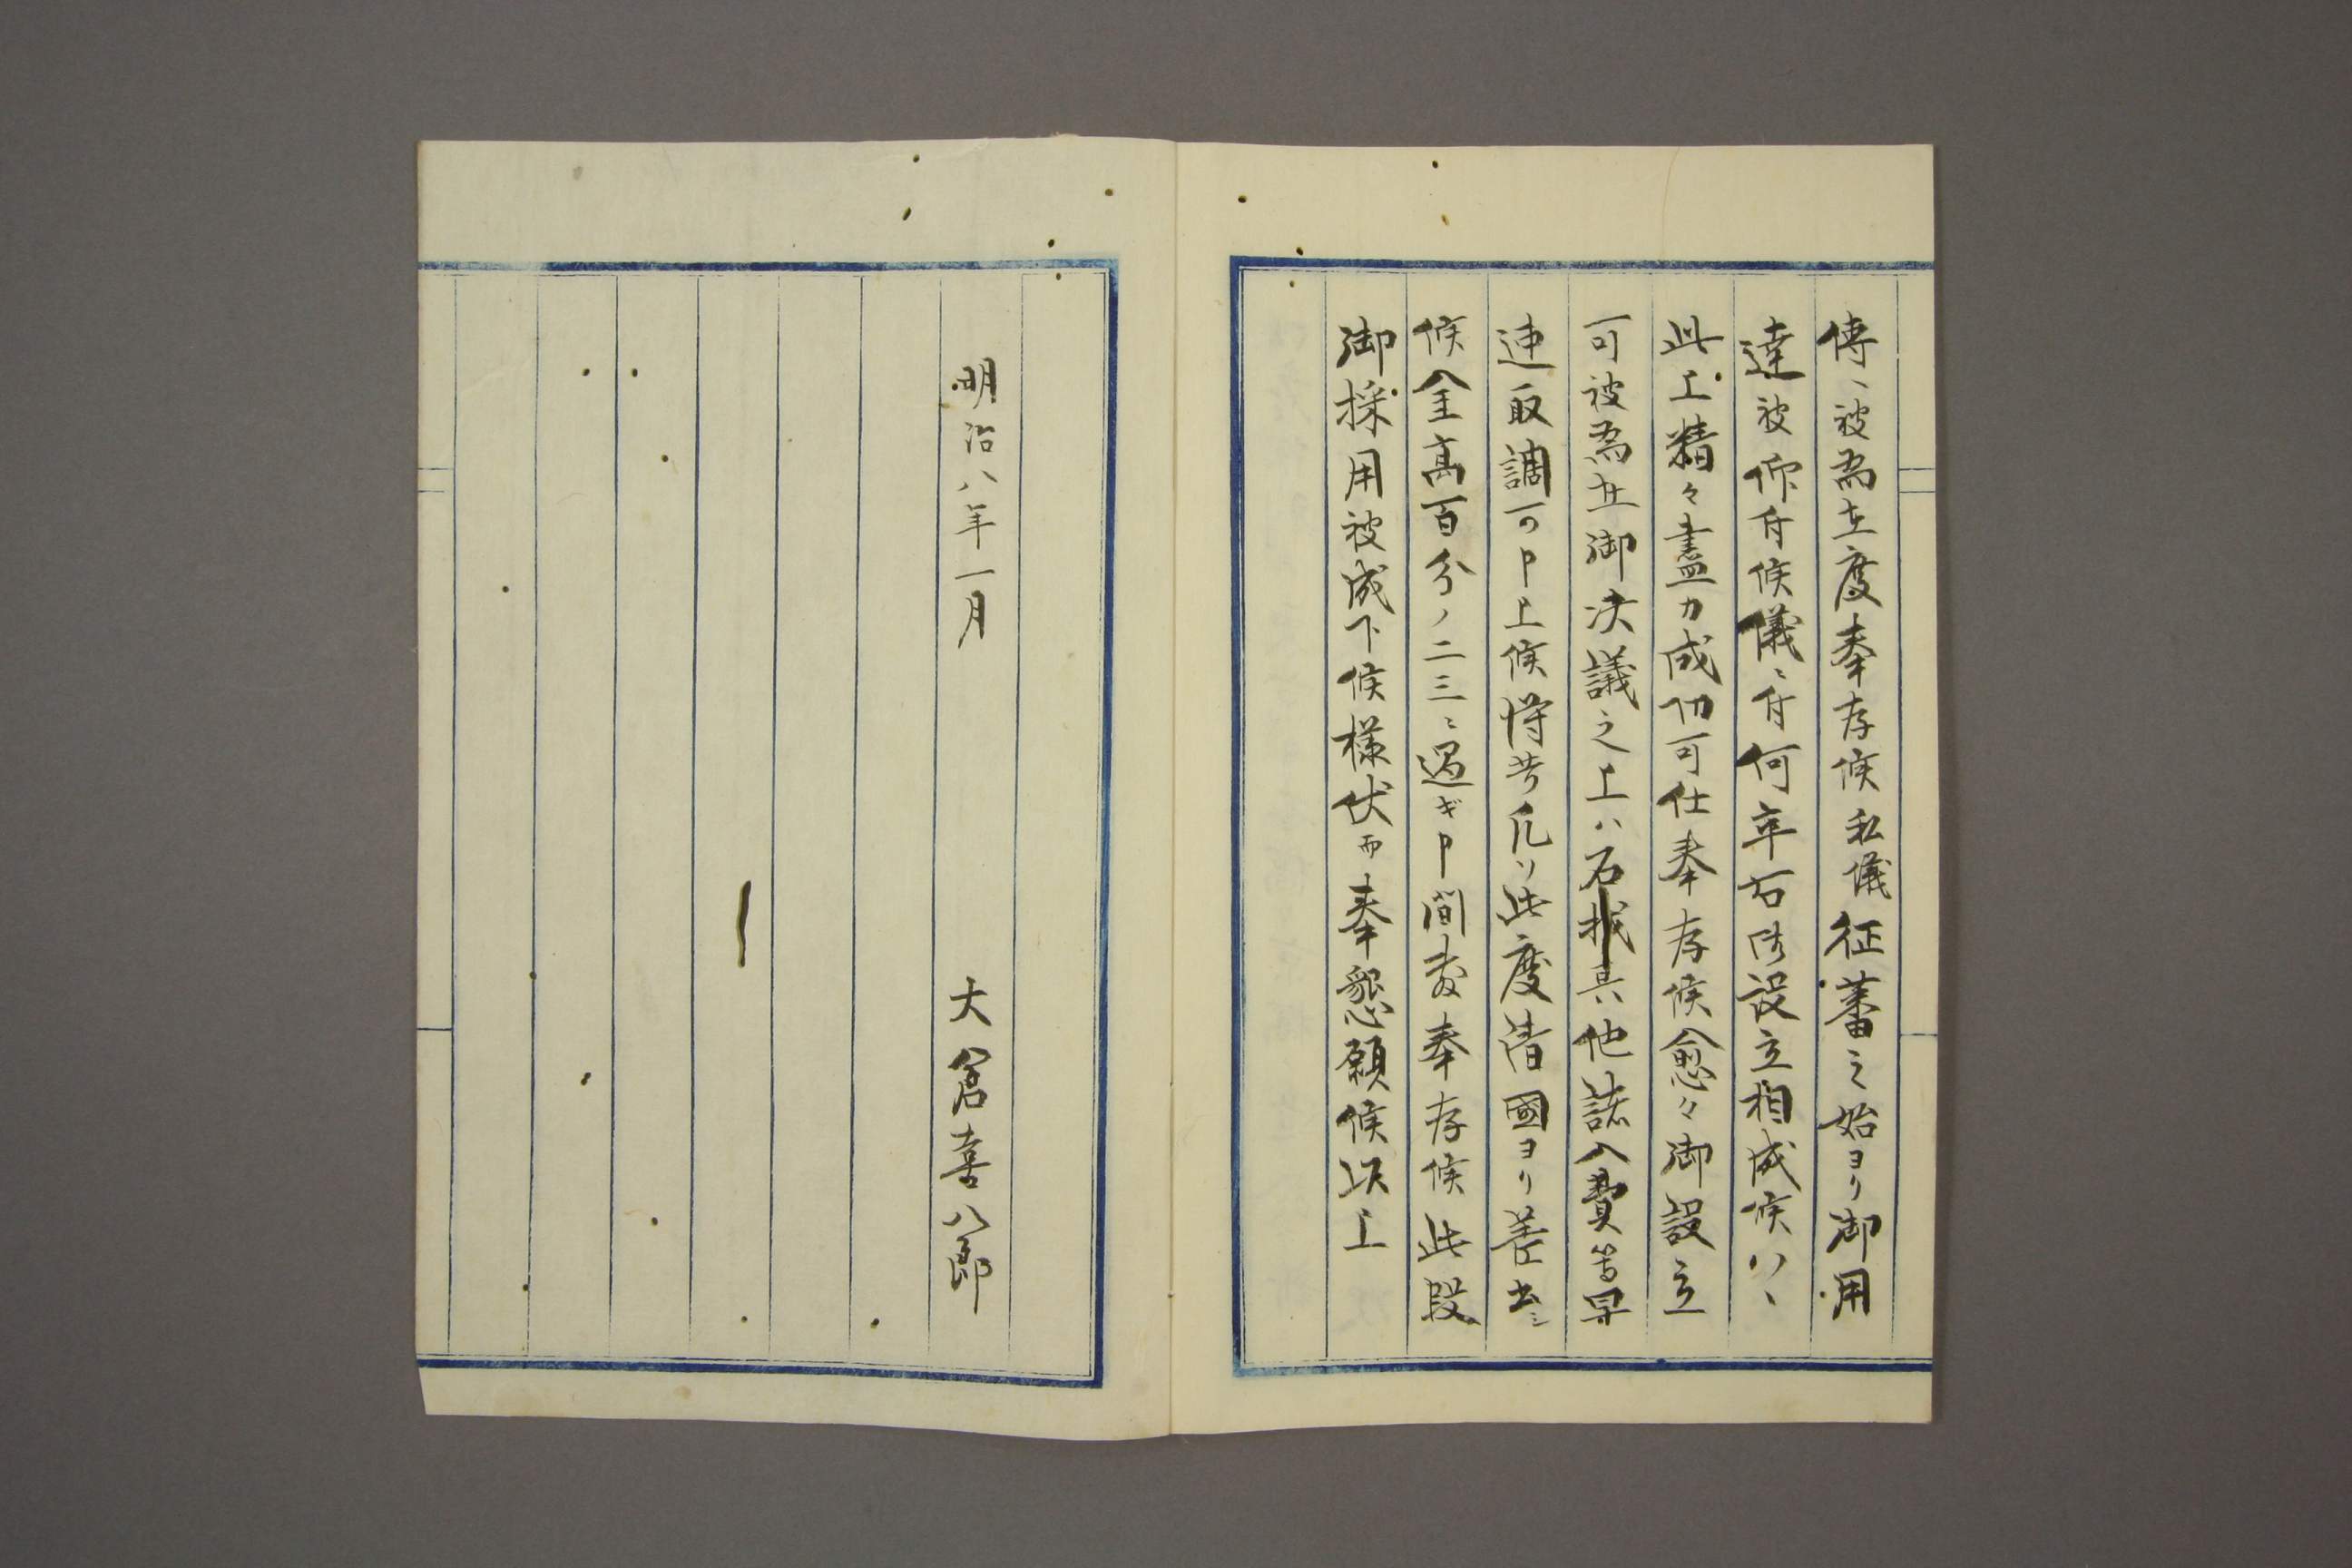 傳ヘ被為在度奉存候私儀征蕃之始ヨリ御用
達被仰付候儀ニ付何卒右御設立相成候ハヽ
此上精々盡力成功可仕奉存候愈々御設立
可被為在御決議之上ハ石炭其他諸入費等早
速取調可申上候得共凡ソ此度清國ヨリ差出シ
候金高百分ノ二三ニ過ギ申間敷奉存候此段
御採用被成下候様伏而奉懇願候以上
明治八年一月
大倉喜八郎